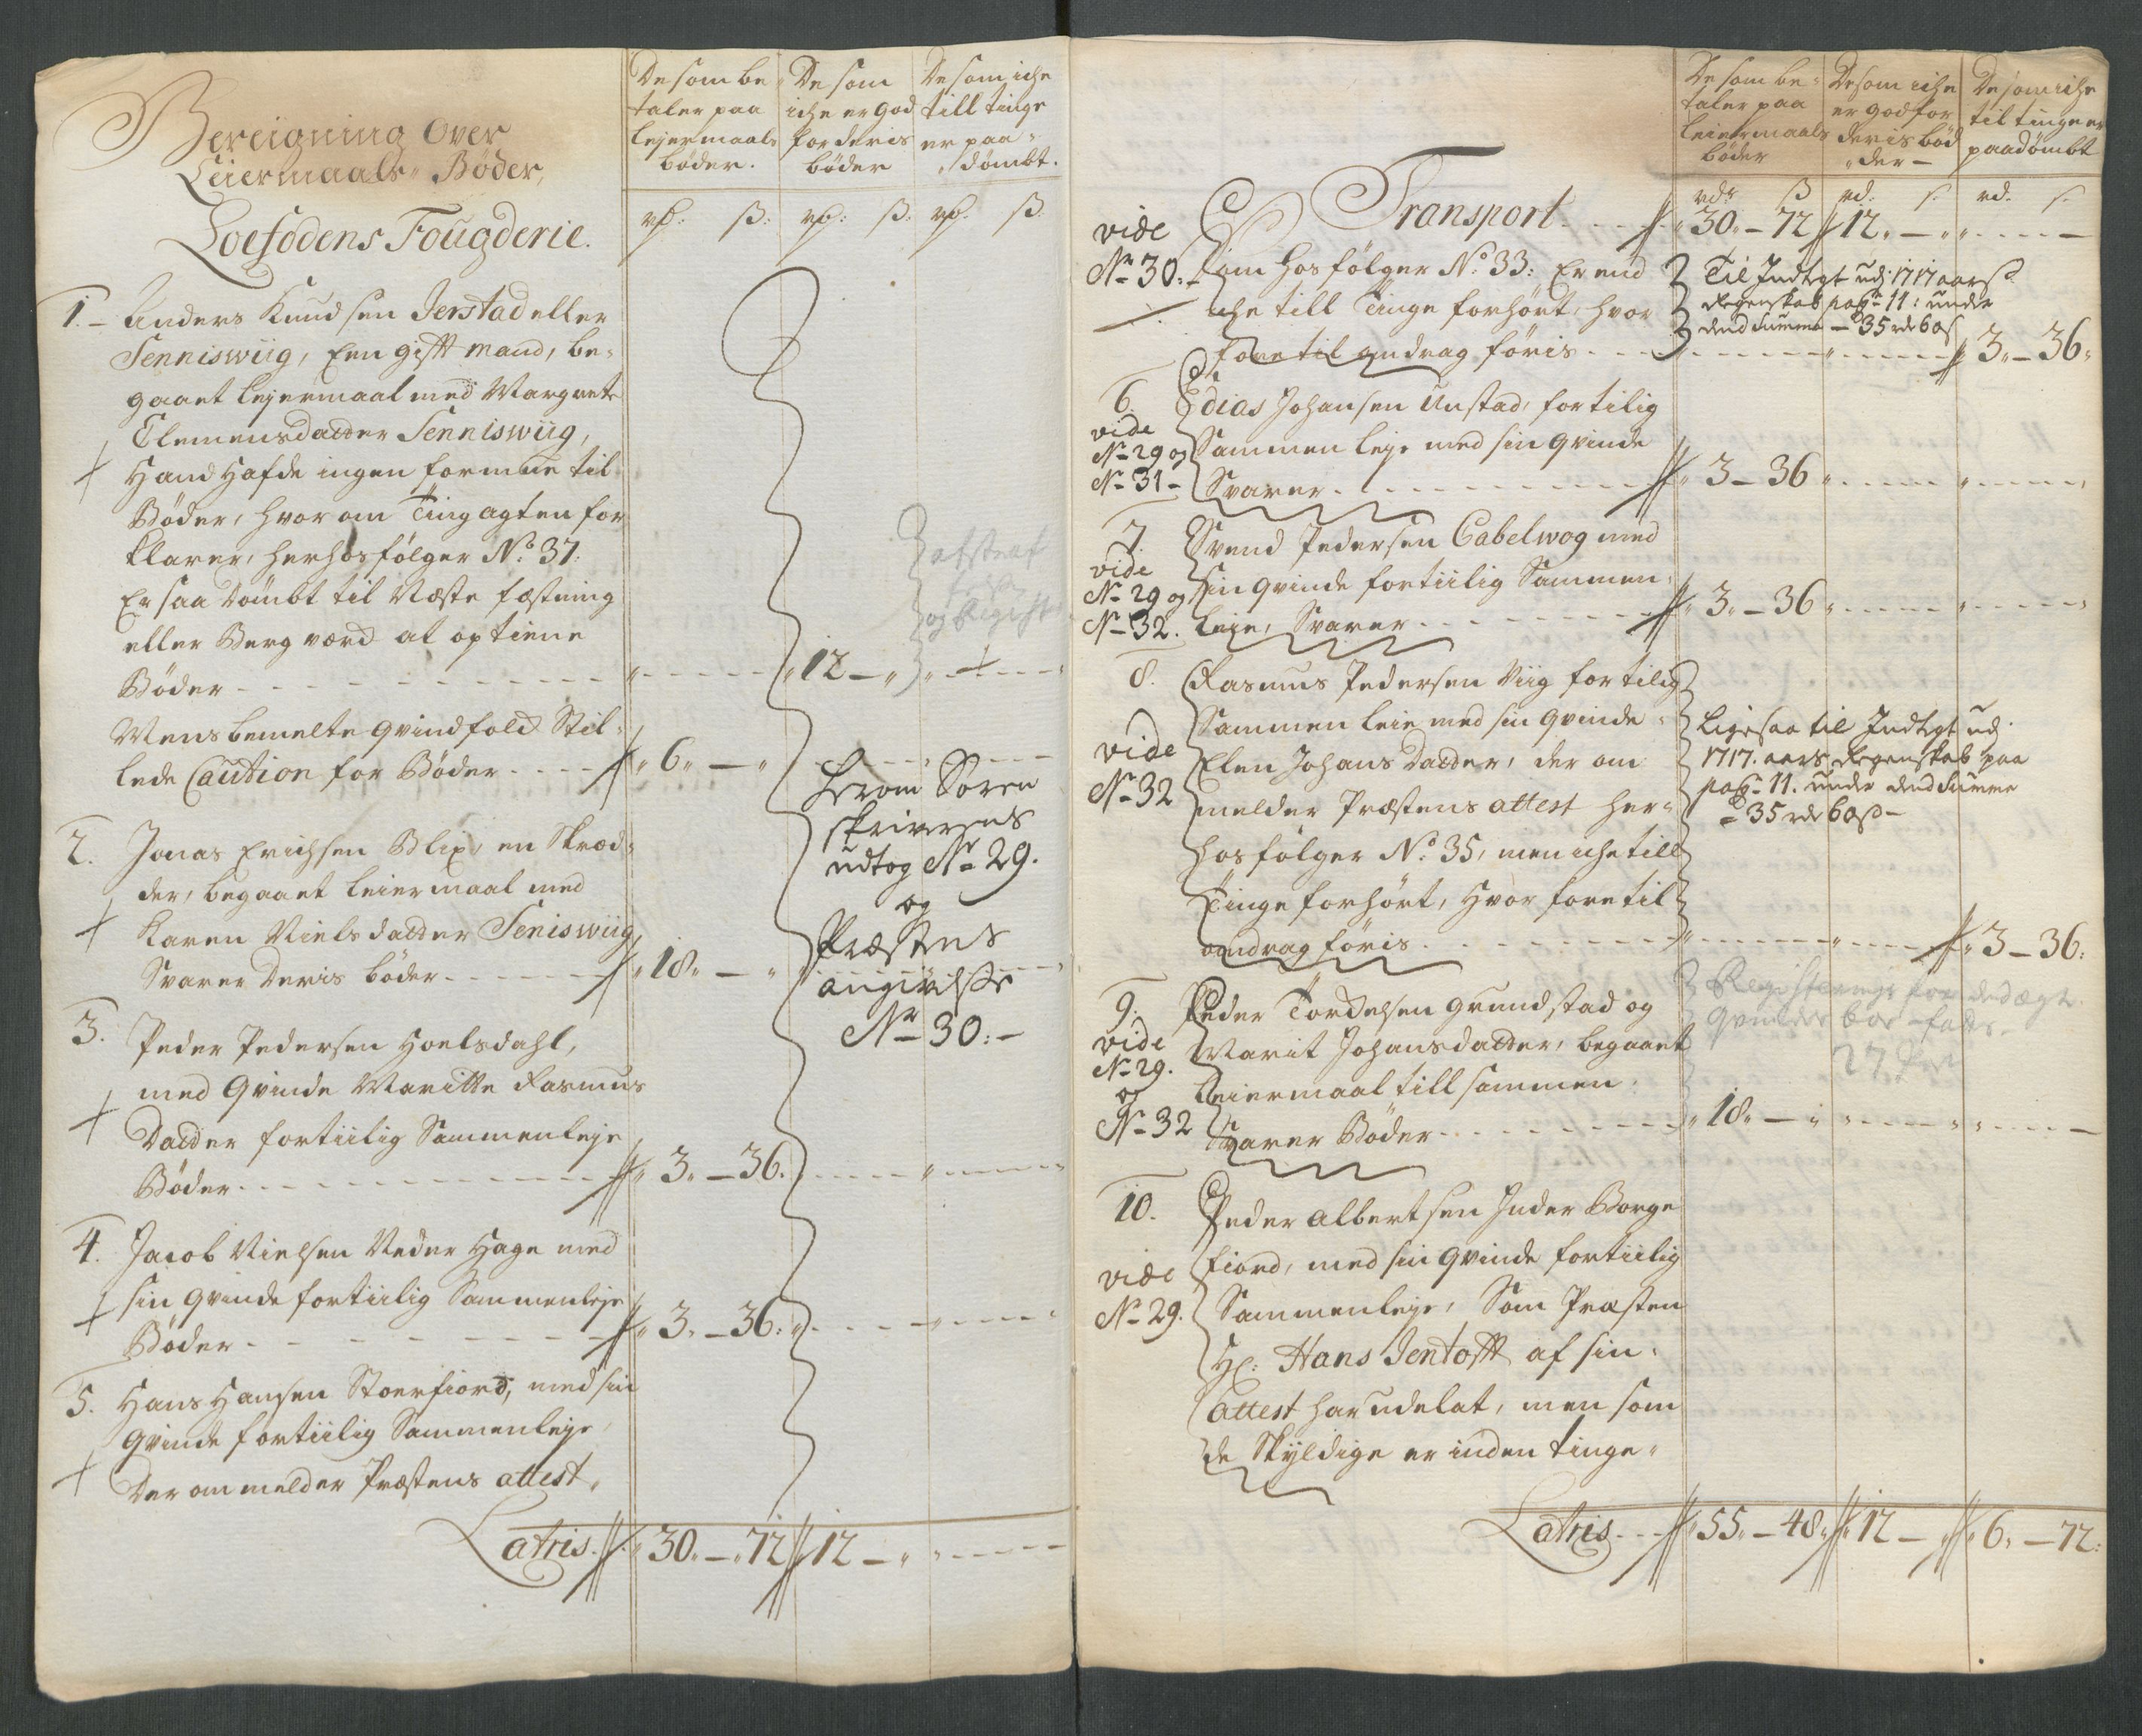 Bereigning Over
Leiermaals Bøder,
Loefodens Fougderie.
De som be
taler paa
lejermaals
bøder.
De som
iche er god
for deris
bøder
De som iche
till tinge
er paa
dømbt.
rd: ß: rd: ß: rd: ß.
1. Anders Knudsen Jerstad eller
Senniswiig, Een gifft Mand, be-
gaaet lejermaal med Margrete
Clemensdatter Senniswiig,
Hand Hafde ingen formue til
Bøder, hvorom Tingagten for
klarer, herhos følger No. 37.
Er saa dømbt til Næste fæstning
eller Bergværd at optiene
Bøder - - - 12 -
afstraf
og Regist
Mens bemelte qvindfolck Stil-
lede Caution for Bøder - - 6 -
2. Jonas Erichsen Blix, en Skræd-
der, begaaet leiermaal med
Karen Nielsdatter Seniswiig,
Svarer deris bøder - - - 18 -
herom Soren
skrivers
udtog No 29.
og
Præstens
angivelse
Nr 30:-
3. Peder Pedersen Hoelsdahl,
med Qvinde Maritte Rasmus
Datter fortiilig Sammenleje
Bøder - - - 3 - 36.
4. Jacob Nielsen Neder Hage med
sin qvinde fortiilig Sammenleje
Bøder - - - 3 - 36:
5. Hans Hansen Stoerfiord, med sin
Qvinde fortiilig Sammenleje,
Der om melder Præstens attest,
Latris. 30 - 72 12 -
De som be-
taler paa
leiermaals
bøder
De som iche
er god for
deris bød
der -
De som iche
til tinge er
paadømbt
rdr ß rd. ß. rd. ß.
Transport - - - 30 - 72 12 -
vide
No 30:
som hos følger No. 33: Er end
iche till Tinge forhørt, hvor
fore til andrag føris - - - 3 - 36
Til Indtegt udj 1717 aars
Regenskab pag 11: under
dend Summa - 35 rdr 60 ß
6. vide
No 29 og
No 31 -
Edias Johansen Unstad, fortilig
Sammenleje med sin qvinde
Svarer - - - 3 - 36
7. vide
No 29 og
No 32.
Svend Pedersen Cabelwog med
sin qvinde fortiilig Sammen
leje, Svarer - - - 3 - 36
8.
vide
No 32
Rasmus Pedersen Viig fortilig
Sammenleie med sin qvinde
Elen Johans Datter, der om
melder Præstens attest her-
hos følger No. 35, men iche till
Tinge forhørt, Hvor fore til
andrag føris - - - 3 - 36:
Ligesaa til Indtegt udj
1717. aars Regenskab paa
pag 11. under dend Summa
35 rdr 60 ß -
9.
vide
No 29.
og
No 32
Peder Tordelsen Grundstad og
Marit Johansdatter, begaaet
Leiermaal till sammen
Svarer Bøder - - - 18 -
10.
vide
No 29.
Peder Albertsen Inder Borge
fiord, med sin qvinde fortiilig
Sammenleje, Som Præsten
Hr: Hans Jentofft af sin
attest har udelat, men som
de Skyldige er inden tinge
Latris - - 55 - 48 12 - 6 - 72: